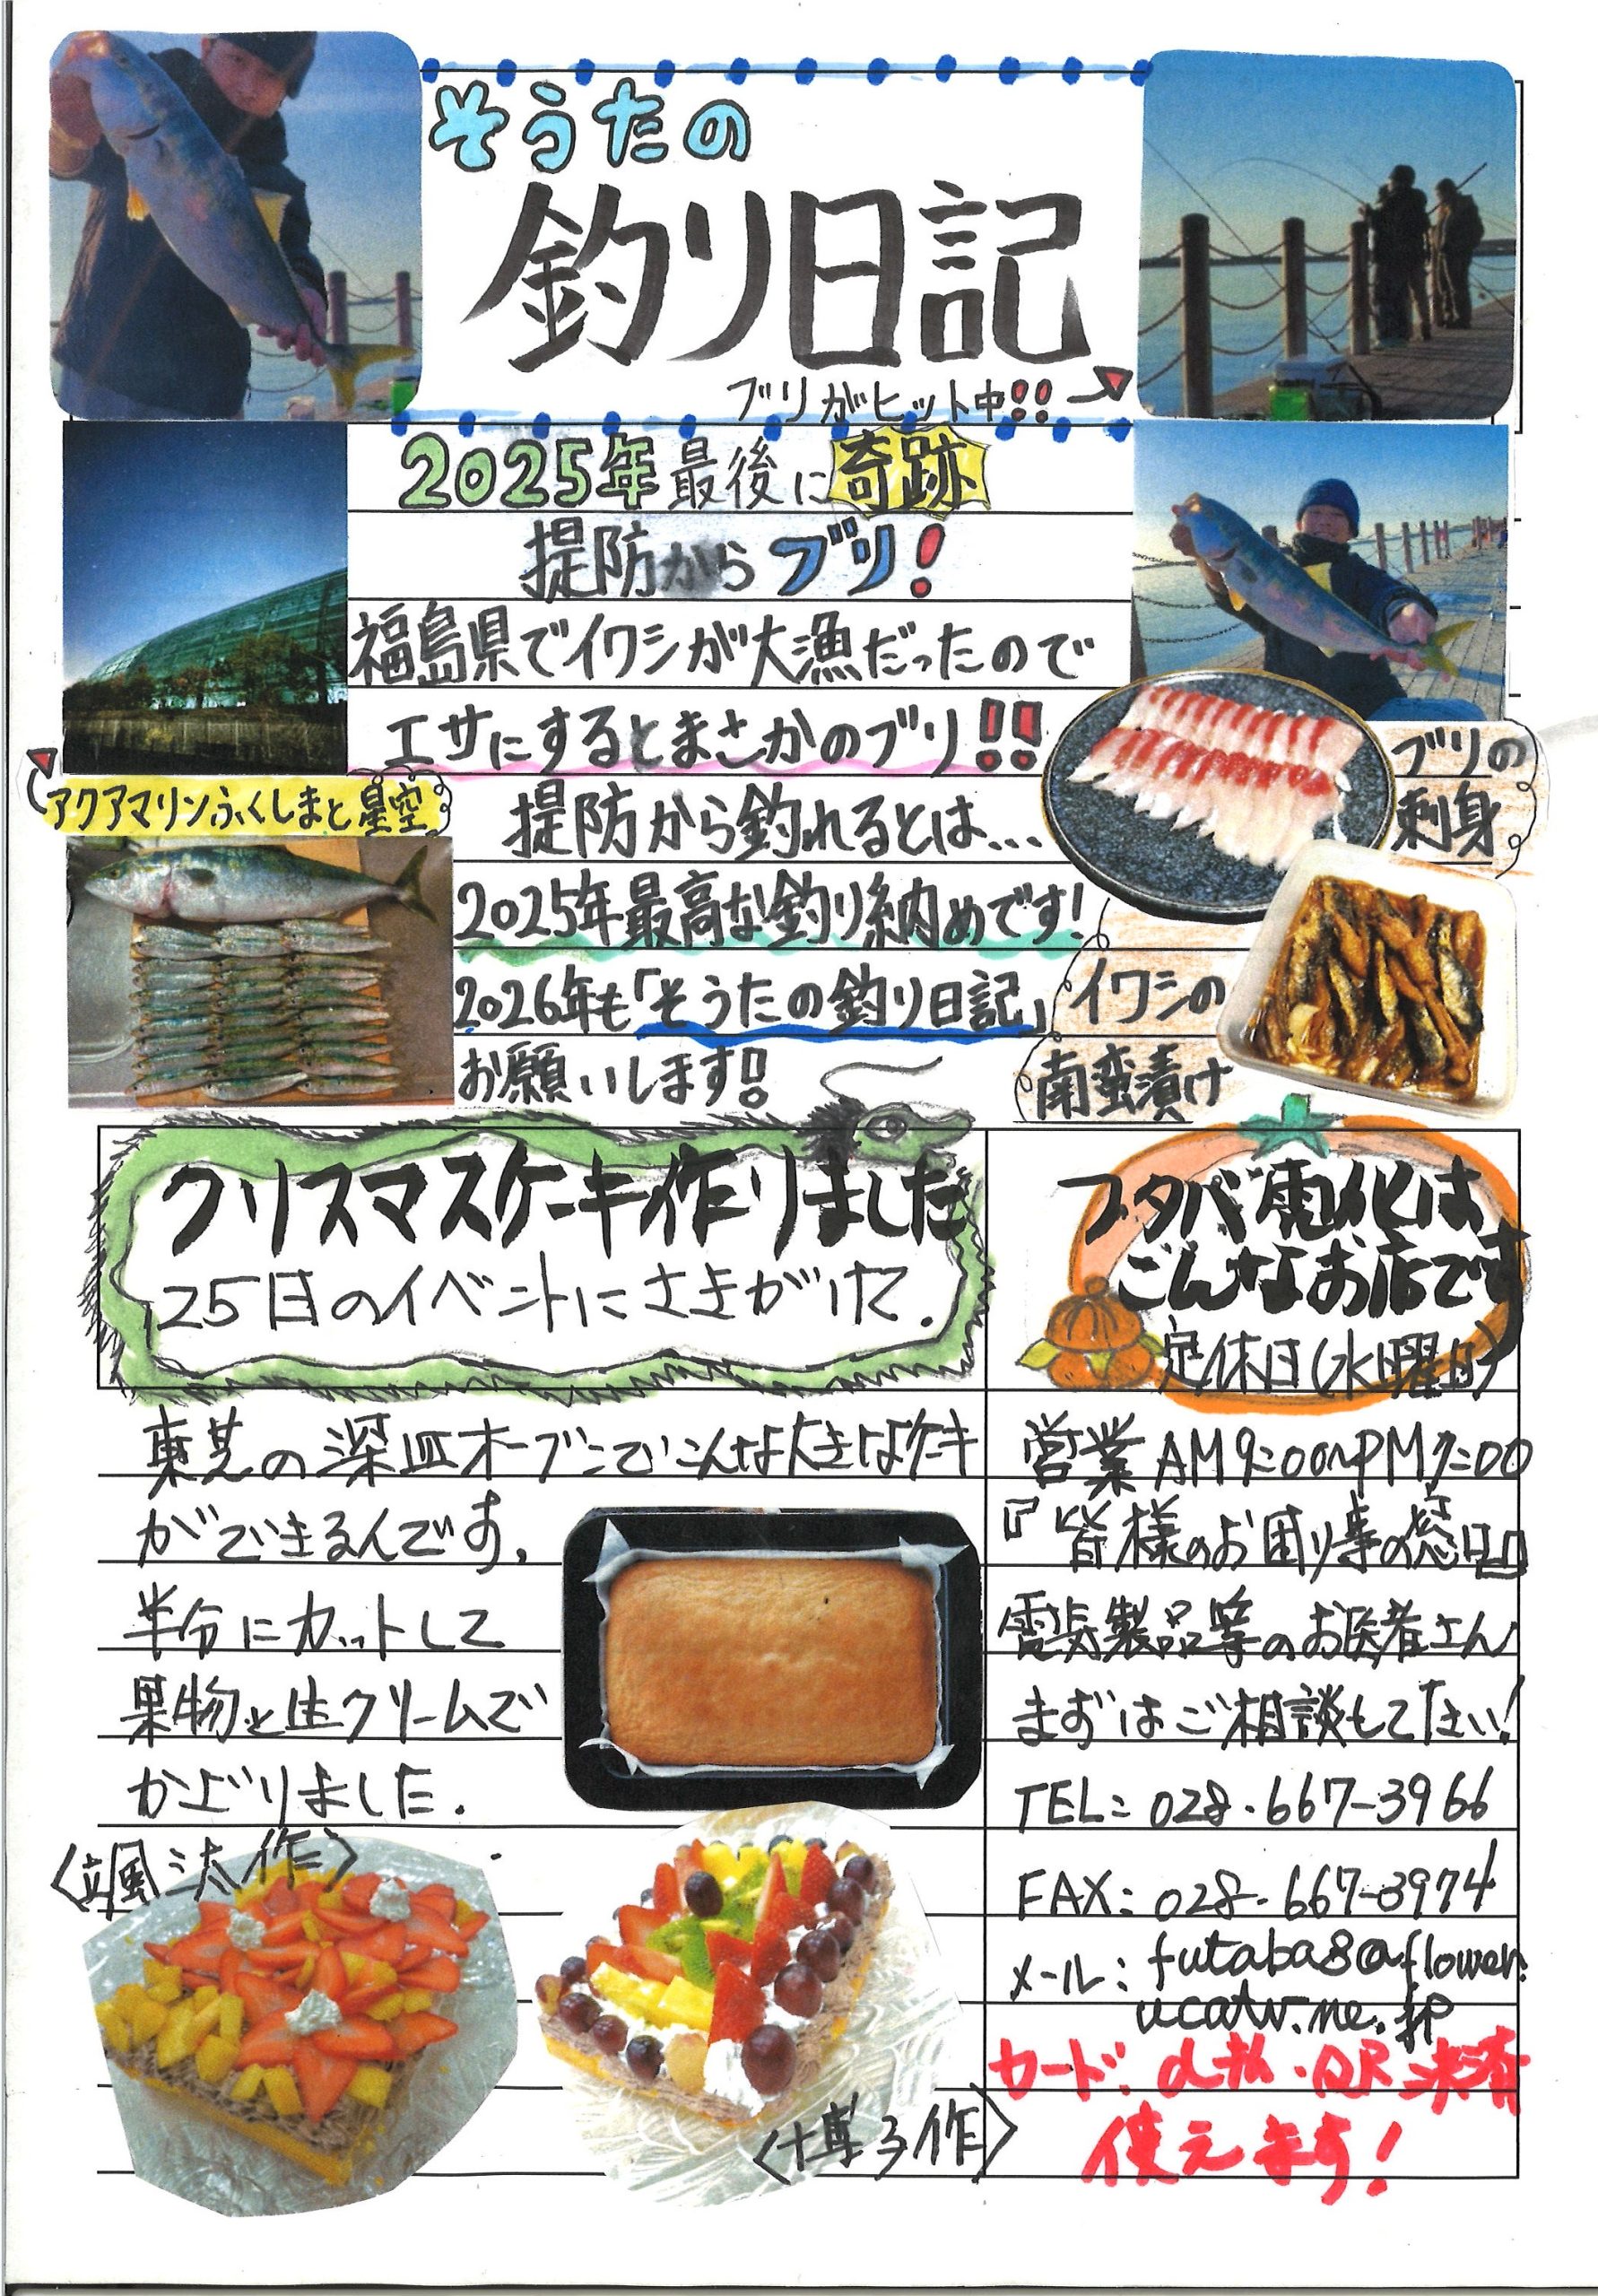 そうたの
釣り日記
ブリがヒット中!!
2025年最後に奇跡
提防からブリ!
福島県でイワシが大漁だったので
エサにするとまさかのブリ!!
提防から釣れるとは…
2025年最高な釣り納めです!
2026年も「そうたの釣り日記」
お願いします!!
アクアマリンふくしまと星空
ブリの
刺身
イワシの
南蛮漬け
クリスマスケーキ作りました
25日のイベントにさきがけて.
東芝の深皿オーブンでこんな大きなケーキ
ができるんです.
半分にカットして
果物と生クリームで
かざりました.
〈颯汰作〉
〈博子作〉
フタバ電化は
こんなお店です
定休日(水曜日)
営業AM9:00〜PM7:00
『皆様のお困り事の窓口』
電気製品等のお医者さん
まずはご相談して下さい!
TEL: 028-667-3966
FAX: 028-667-3974
メール: futaba8@flower.
ucatv.ne.jp
カード.d払.QR決済
使えます!